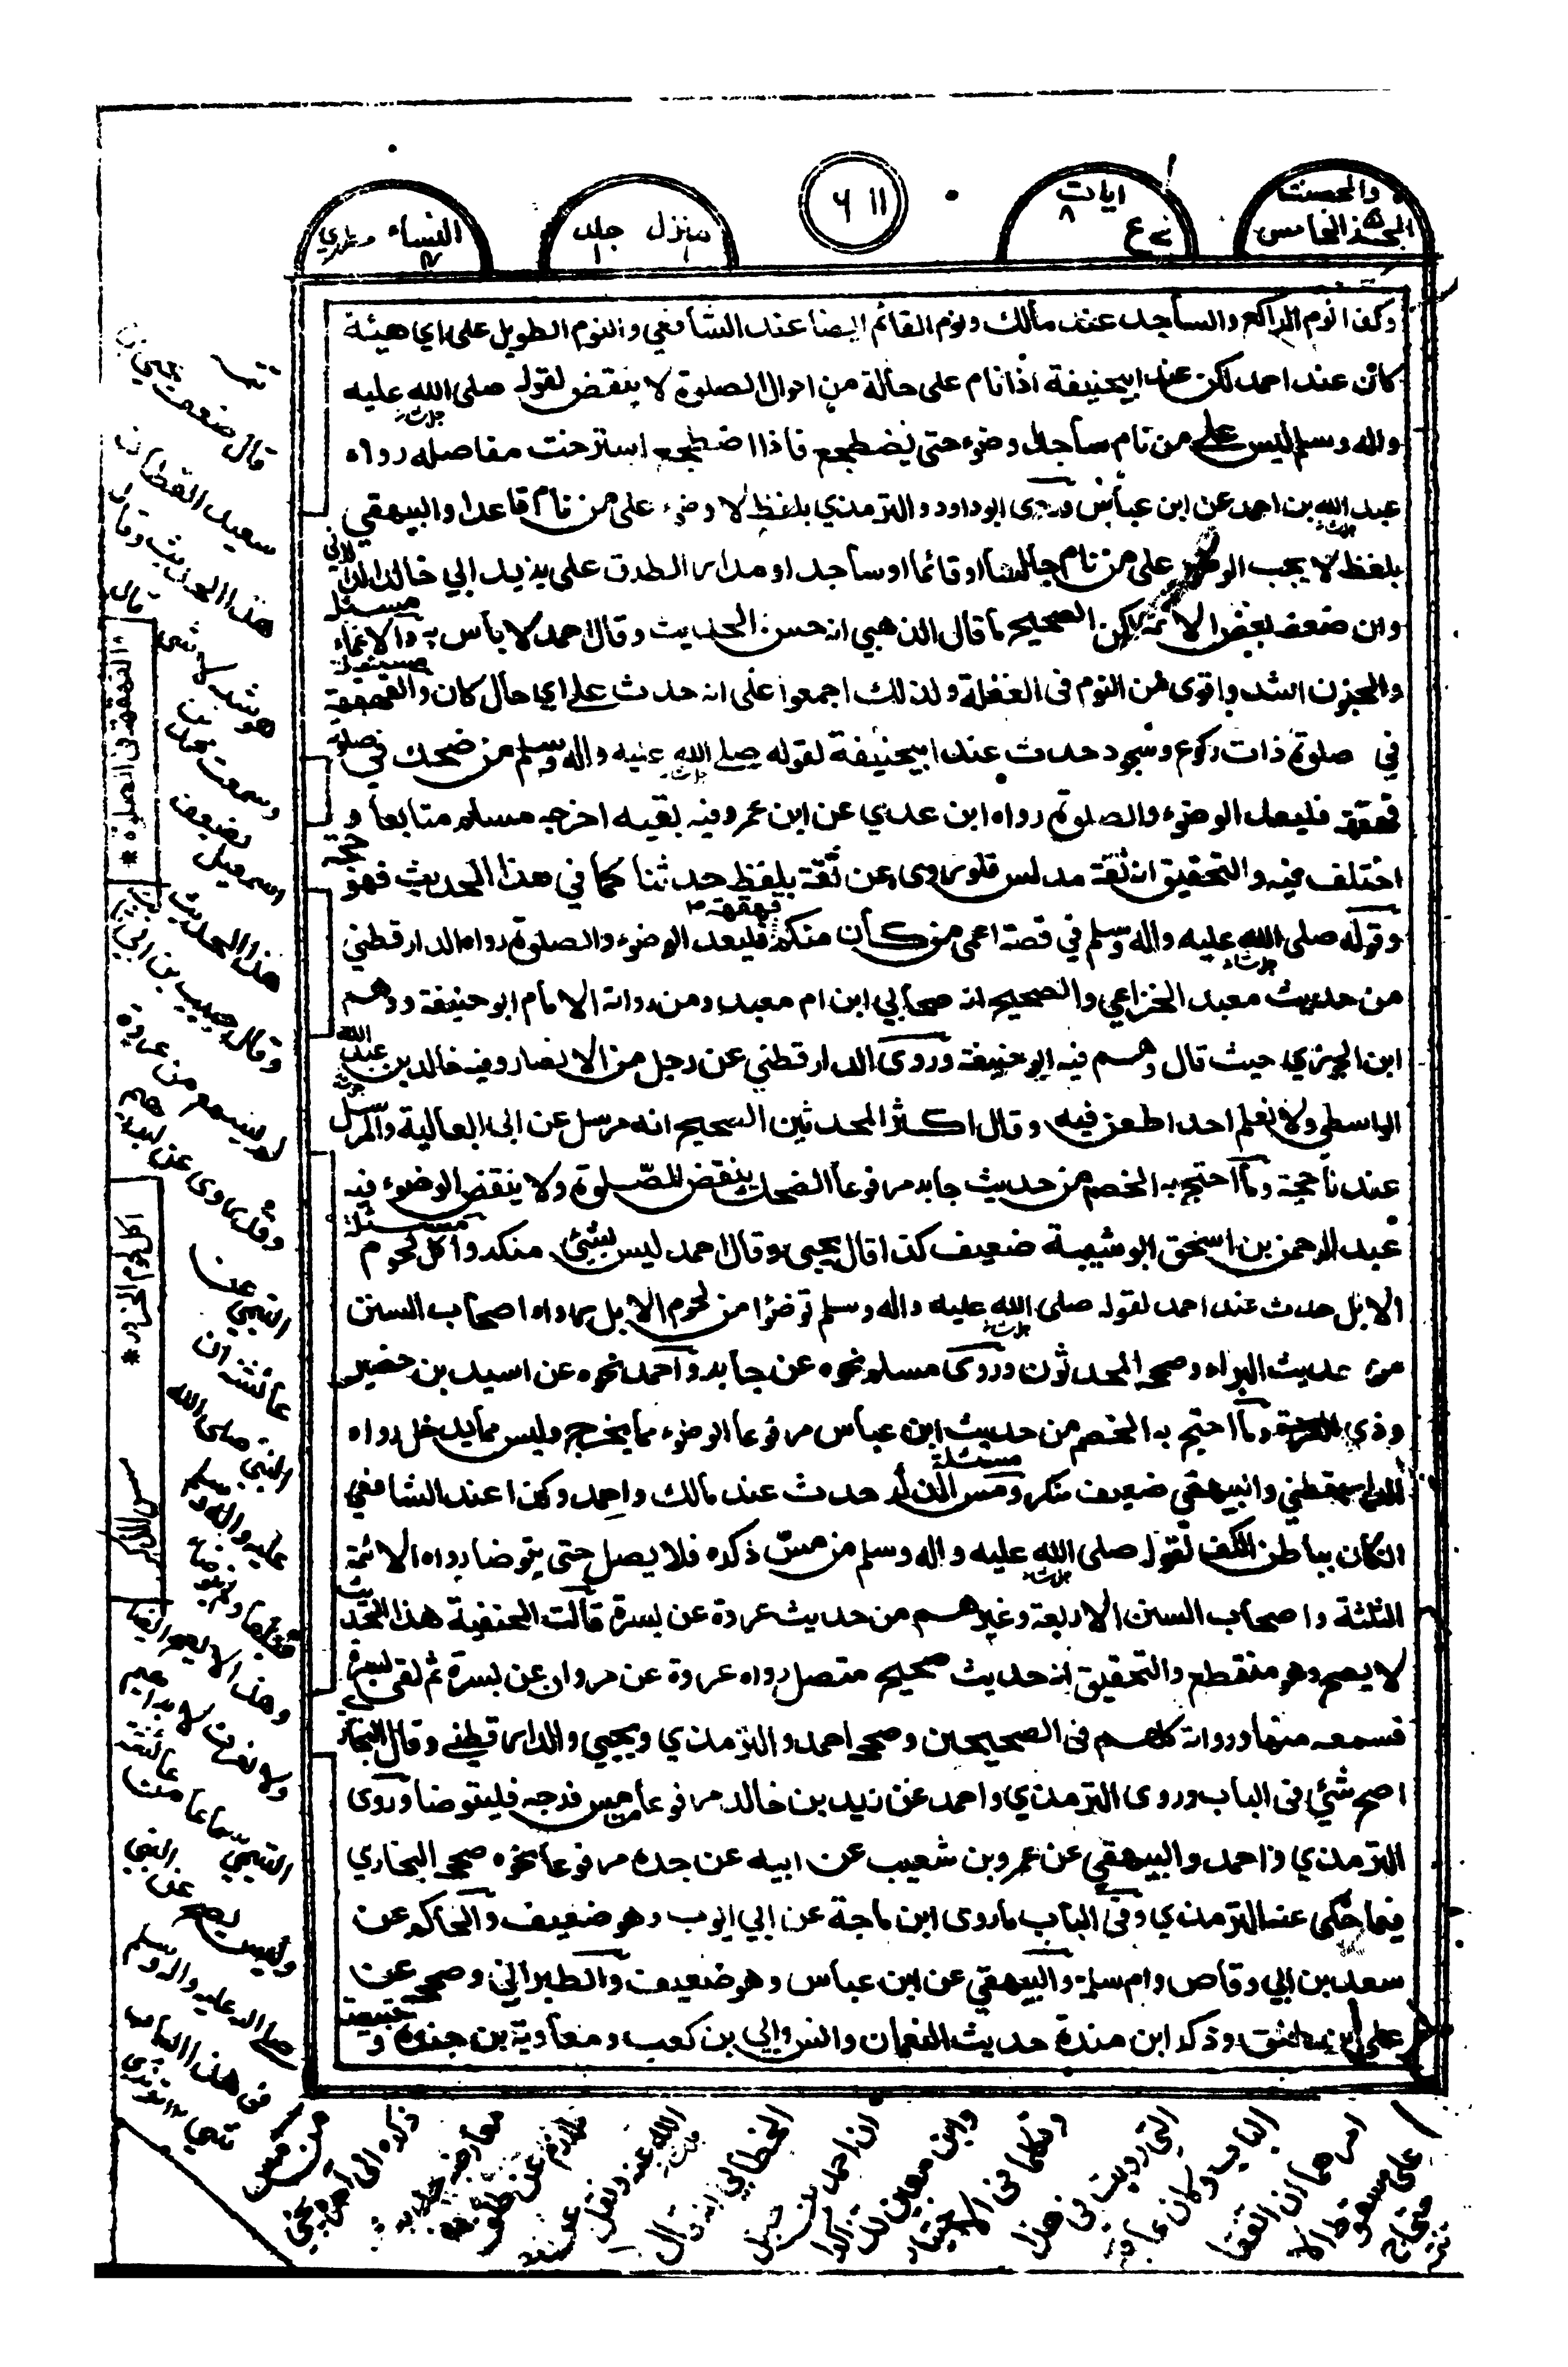 والمحصنت
الجزء الخامس
ايات ٨
ع
٦١١
منزل ١ جلد ١
النساء ٤ مظهري
وكذا نوم الراكع والساجد عند مالك ونوم القائم ايضا عند الشافعي والنوم الطويل على اي هيئة
كان عند احمد لكن عند ابيحنيفة اذا نام على حالة من احوال الصلوة لا ينقض لقوله صلى الله عليه
واله وسلم ليس على من نام ساجدا وضوء حتى يضطجع فاذا اضطجع استرخت مفاصله رواه
عبد الله بن احمد عن ابن عباس وروى ابو داود والترمذي بلفظ لا وضوء على من نام قاعدا والبيهقي
بلفظ لا يجب الوضوء على من نام جالسا او قائما او ساجدا ومدار الطرق على يزيد ابي خالد الدالاني
وان ضعفه بعض الائمة لكن الصحيح ما قال الذهبي انه حسن الحديث وقال احمد لا باس به مسئلة والاغماء
والجنون اشد واقوى من النوم فى الغفلة ولذلك اجمعوا على انه حدث على اي حال كان مسئلة والقهقهة
في صلوة ذات ركوع وسجود حدث عند ابيحنيفة لقوله صلى الله عليه واله وسلم من ضحك في صلوة
قهقهة فليعد الوضوء والصلوة رواه ابن عدي عن ابن عمر وفيه بقيه اخرجه مسلم متابعا و
اختلف فيه والتحقيق انه ثقة مدلس فلو روى عن ثقة بلفظ حدثنا كما في هذا الحديث فهو حجة
وقوله صلى الله عليه واله وسلم في قصة اعمى من كان منكم قهقهة فليعد الوضوء والصلوة رواه الدارقطني
من حديث معبد الخزاعي والصحيح انه صحابي ابن ام معبد ومن رواته الامام ابو حنيفة ووهم
ابن الجوزي حيث قال وهم فيه ابو حنيفة وروى الدارقطني عن رجل من الانصار وفيه خالد بن عبد الله
الواسطي ولا نعلم احدا طعن فيه وقال اكثر المحدثين الصحيح انه مرسل عن ابى العالية والمرسل
عندنا حجة وما احتج به الخصم من حديث جابر مرفوعا الضحك ينقض الصلوة ولا ينقض الوضوء فيه
عبد الرحمن بن اسحق ابو شيبة ضعيف كذا قال يحيى وقال احمد ليس بشئ منكر مسئلة واكل لحوم
الابل حدث عند احمد لقوله صلى الله عليه واله وسلم توضؤا من لحوم الابل رواه اصحاب السنن
من حديث البراء وصححه المحدثون وروى مسلم نحوه عن جابر واحمد نحوه عن اسيد بن حضير
وذي الغرة وما احتج به الخصم من حديث ابن عباس مرفوعا الوضوء مما يخرج وليس مما يدخل رواه
الدارقطني والبيهقي ضعيف منكر مسئلة ومس الذكر حدث عند مالك واحمد وكذا عند الشافعي
ان كان بباطن الكف لقوله صلى الله عليه واله وسلم من مس ذكره فلا يصل حتى يتوضا رواه الائمة
الثلثة واصحاب السنن الاربعة وغيرهم من حديث عروة عن بسرة قالت الحنفية هذا الحديث
لا يصح وهو منقطع والتحقيق انه حديث صحيح متصل رواه عروة عن مروان عن بسرة ثم لقى بسرة
فسمعه منها ورواته كلهم فى الصحيحين وصححه احمد والترمذي ويحيي والدارقطني وقال البخاري
اصح شئ فى الباب وروى الترمذي واحمد عن زيد بن خالد مرفوعا من مس فرجه فليتوضا وروى
الترمذي واحمد والبيهقي عن عمرو بن شعيب عن ابيه عن جده مرفوعا نحوه صححه البخاري
فيما حكى عنه الترمذي وفى الباب ما روى ابن ماجة عن ابي ايوب وهو ضعيف والحاكم عن
سعد بن ابي وقاص وام سلمة والبيهقي عن ابن عباس وهو ضعيف والطبراني وصححه عن
علي بن طلق وذكر ابن مندة حديث النعمان وانس وابي بن كعب ومعاوية بن حيدة وقبيصة و
القهقهة فى الصلوة *
اكل لحوم الجزور *
مس الذكر
قال ضعف يحيى بن
سعيد القطان
هذا الحديث وقال
هو شبه لا شئ قال
وسمعت محمد بن
اسمعيل يضعف
هذا الحديث
وقال حبيب بن ابي ثابت
لم يسمع من عروة
وقد روى عن ابراهيم
التيمي عن
عائشة ان
النبي صلى الله
عليه واله وسلم
قبلها ولم يتوضا
وهذا لا يصح ايضا
ولا نعرف لابراهيم
التيمي سماعا من عائشة
وليس يصح عن النبي
صلى الله عليه واله وسلم
فى هذا الباب
شئ